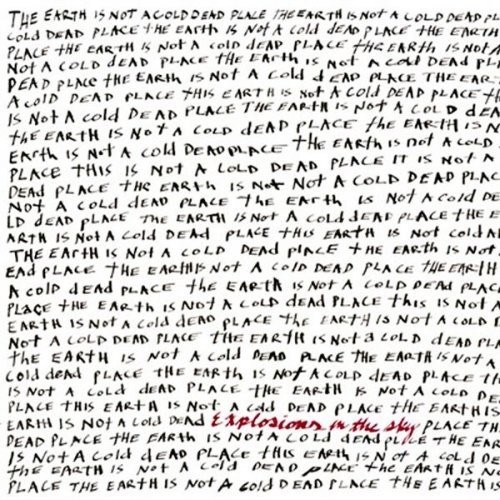 THE EARTH IS NOT A COLD DEAD PLACE THE EARTH IS NOT A COLD DEAD PL
COLD DEAD PLACE THE EARTH IS NOT A COLD DEAD PLACE THE EARTH
PLACE THE EARTH IS NOT A COLD DEAD PLACE THE EARTH IS NOT A
NOT A COLD DEAD PLACE THE EARTH IS NOT A COLD DEAD PL
DEAD PLACE THE EARTH IS NOT A COLD DEAD PLACE THE EAR
A COLD DEAD PLACE THIS EARTH IS NOT A COLD DEAD PLACE TH
IS NOT A COLD DEAD PLACE THE EARTH IS NOT A COLD DEA
THE EARTH IS NOT A COLD DEAD PLACE THE EARTH IS N
EARTH IS NOT A COLD DEAD PLACE THE EARTH IS NOT A COLD
PLACE THIS IS NOT A COLD DEAD PLACE IT IS NOT A
DEAD PLACE THE EARTH IS NOT NOT A COLD DEAD PLAC
NOT A COLD DEAD PLACE THE EARTH IS NOT A COLD DE
LD DEAD PLACE THE EARTH IS NOT A COLD DEAD PLACE THE E
ARTH IS NOT A COLD DEAD PLACE THIS EARTH IS NOT COLD A
THE EARTH IS NOT A COLD DEAD PLACE THE EARTH IS NOT
EAD PLACE THE EARTH IS NOT A COLD DEAD PLACE THE EARTH
A COLD DEAD PLACE THE EARTH IS NOT A COLD DEAD PLAC
PLACE THE EARTH IS NOT A COLD DEAD PLACE THIS IS NOT A
EARTH IS NOT A COLD DEAD PLACE THE EARTH IS NOT A COLD
NOT A COLD DEAD PLACE THE EARTH IS NOT A COLD DEAD PL
THE EARTH IS NOT A COLD DEAD PLACE THE EARTH IS NOT A
COLD DEAD PLACE THE EARTH IS NOT A COLD DEAD PLACE TH
IS NOT A COLD DEAD PLACE THE EARTH IS NOT A COLD DE
PLACE THIS EARTH IS NOT A COLD DEAD PLACE THE EARTH IS
EARTH IS NOT A COLD DEAD Explosions in the sky PLACE TH
DEAD PLACE THE EARTH IS NOT A COLD DEAD PLACE THE EAR
IS NOT A COLD DEAD PLACE THIS EARTH IS NOT A COLD DE
THE EARTH IS NOT A COLD DEAD PLACE THE EARTH IS N
PLACE THE EARTH IS NOT A COLD DEAD PLACE THE EARTH IS